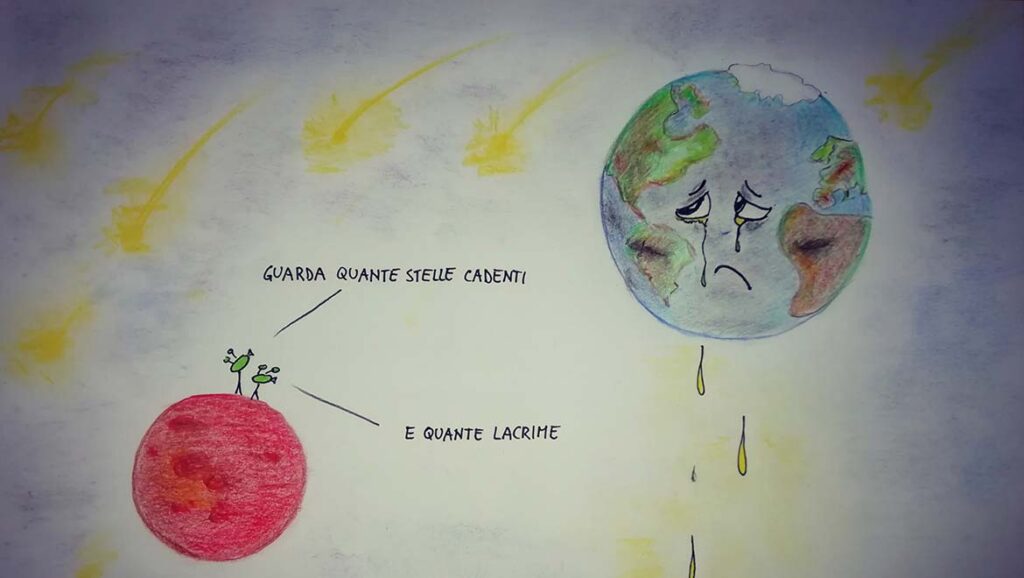 GUARDA QUANTE STELLE CADENTI
E QUANTE LACRIME